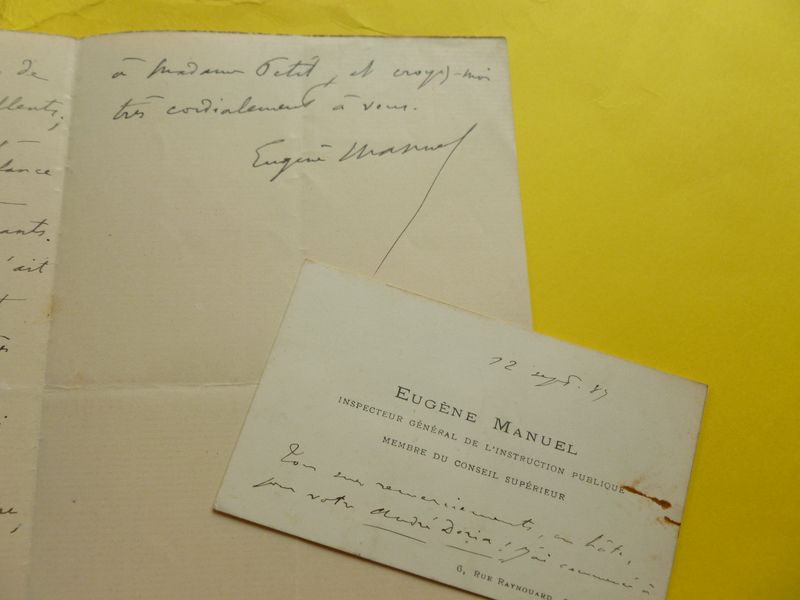 de
llents;
lance
ants.
'ait
à madame Petit, et croyez-moi
très cordialement à vous.
Eugène Manuel
12 sept. 87
EUGÈNE MANUEL
INSPECTEUR GÉNÉRAL DE L'INSTRUCTION PUBLIQUE
MEMBRE DU CONSEIL SUPÉRIEUR
Tous mes remerciements, en hâte,
pour votre André Doria! J'ai commencé à
6, RUE RAYNOUARD